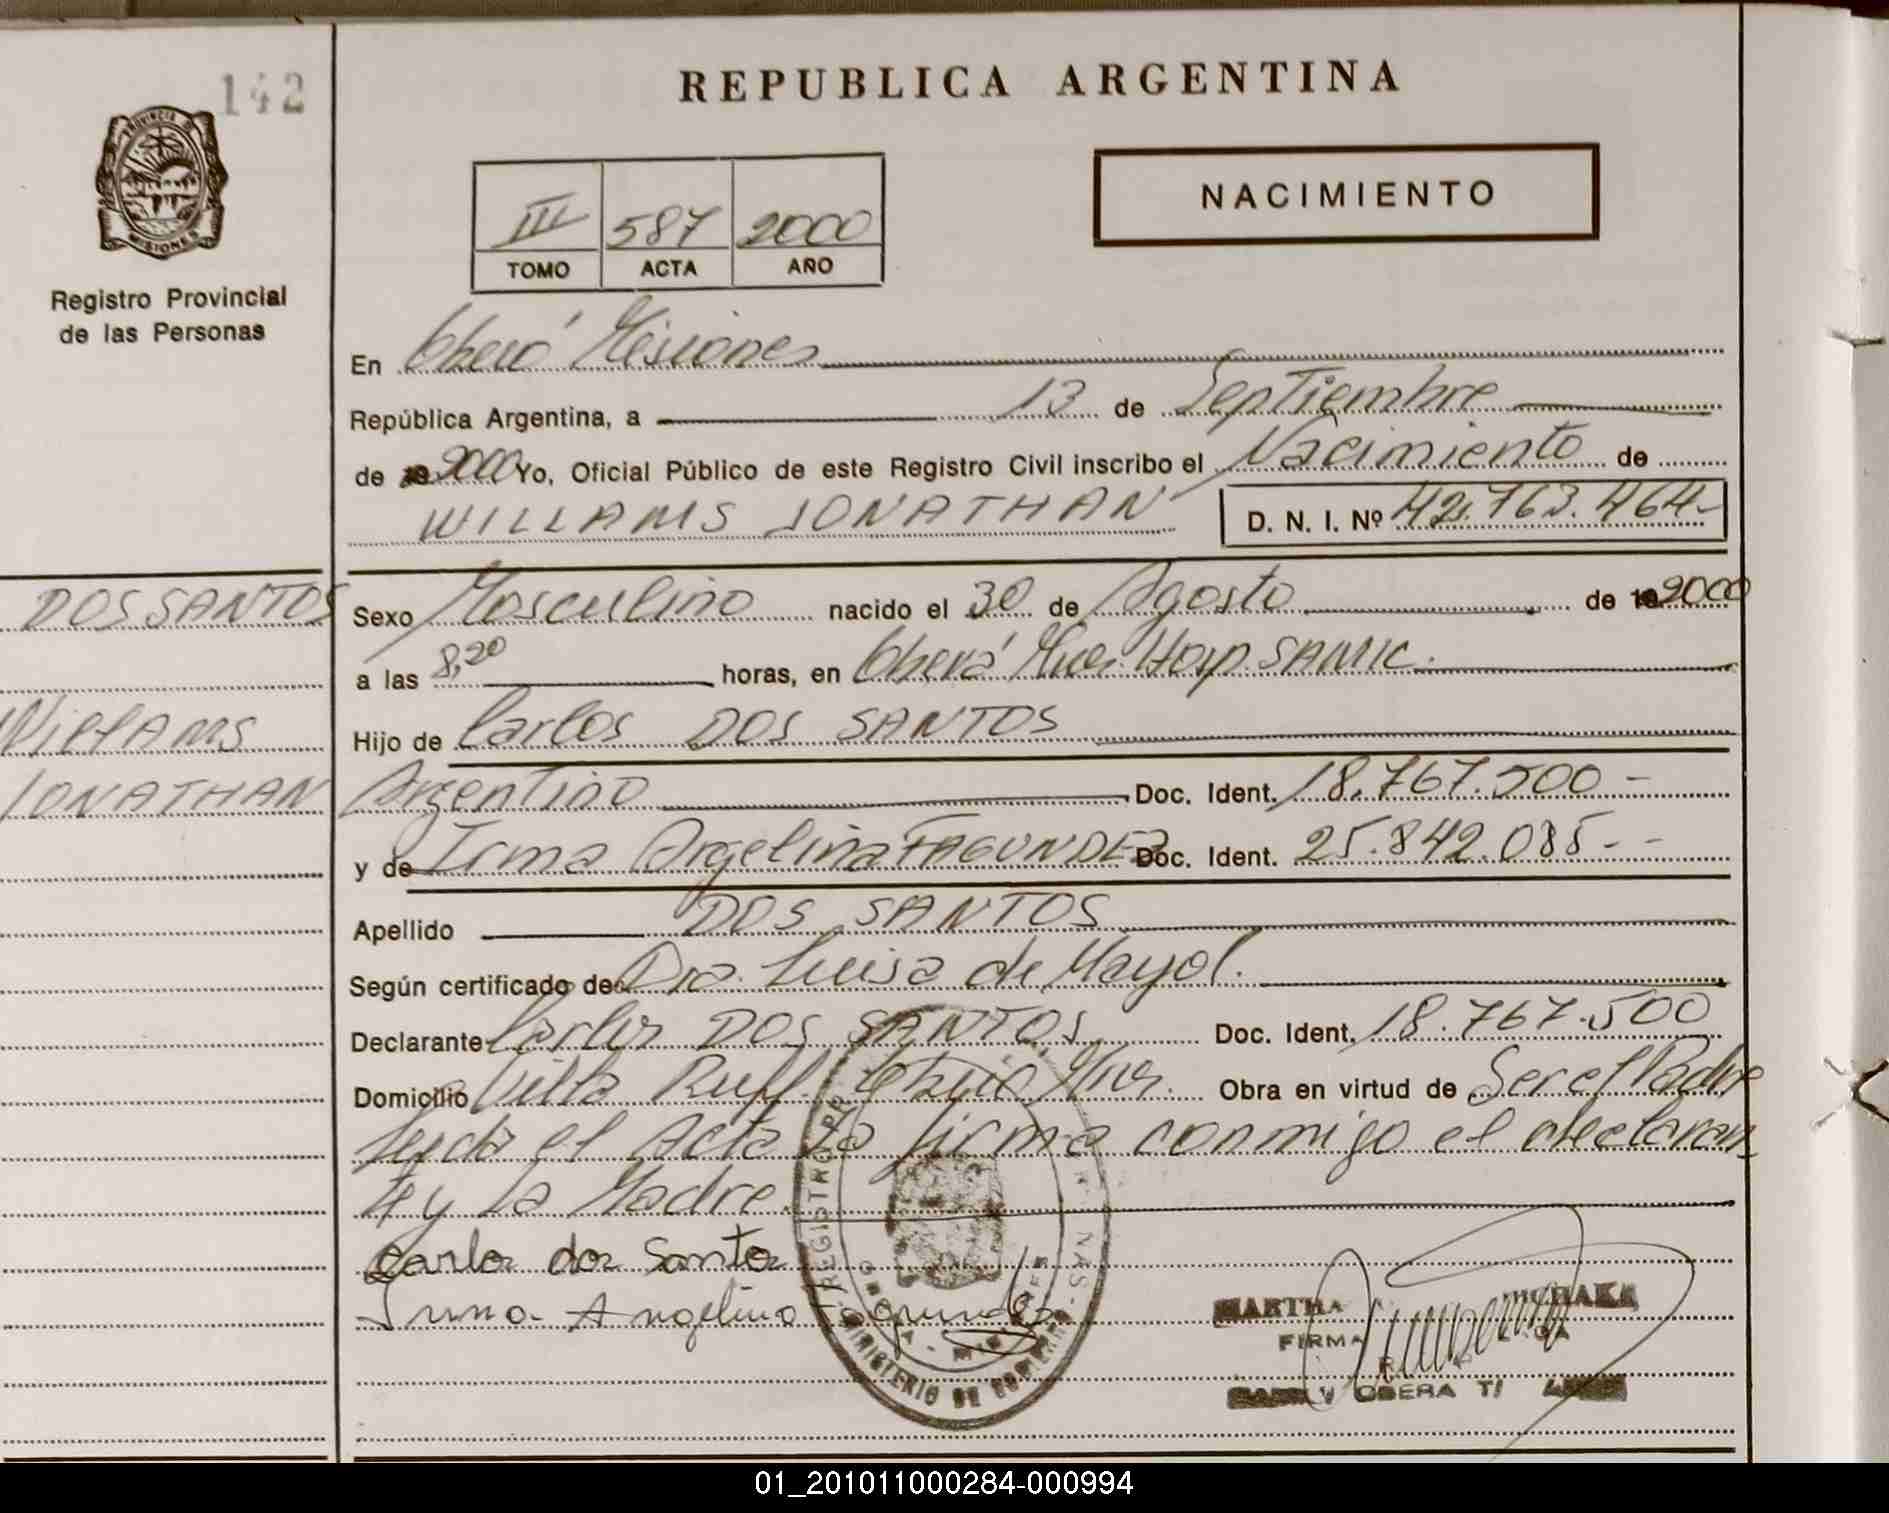 142
REPUBLICA ARGENTINA
PROVINCIA DE
MISIONES
Registro Provincial
de las Personas
NACIMIENTO
III 587 2000
TOMO ACTA AÑO
En Oberá Misiones
República Argentina, a 13 de Septiembre
de 2000 Yo, Oficial Público de este Registro Civil inscribo el Nacimiento de
WILLAMS JONATHAN D. N. I. Nº 42.763.464-
DOS SANTOS
Sexo Masculino nacido el 30 de Agosto de 19 2000
a las 8,20 horas, en Oberá Mnes. Hosp. SAMIC.
Willams
Hijo de Carlos DOS SANTOS
JONATHAN
Argentino Doc. Ident. 18.767.500-
y de Irma Argelina FAGUNDEZ Doc. Ident. 25.842.085--
Apellido DOS SANTOS
Según certificado de Dra. Luisa de Mayol.
Declarante Carlos DOS SANTOS Doc. Ident. 18.767.500
Domicilio Villa Ruff. Oberá Mnes. Obra en virtud de Ser el Padre
Leída el Acta la firma conmigo el declaran
te y la Madre.
Carlos dos Santos
Irma Angelina Fagundez
REGISTRO
MINISTERIO DE GOBIERNO
MARTHA
FIRMA
OBERA
01_201011000284-000994